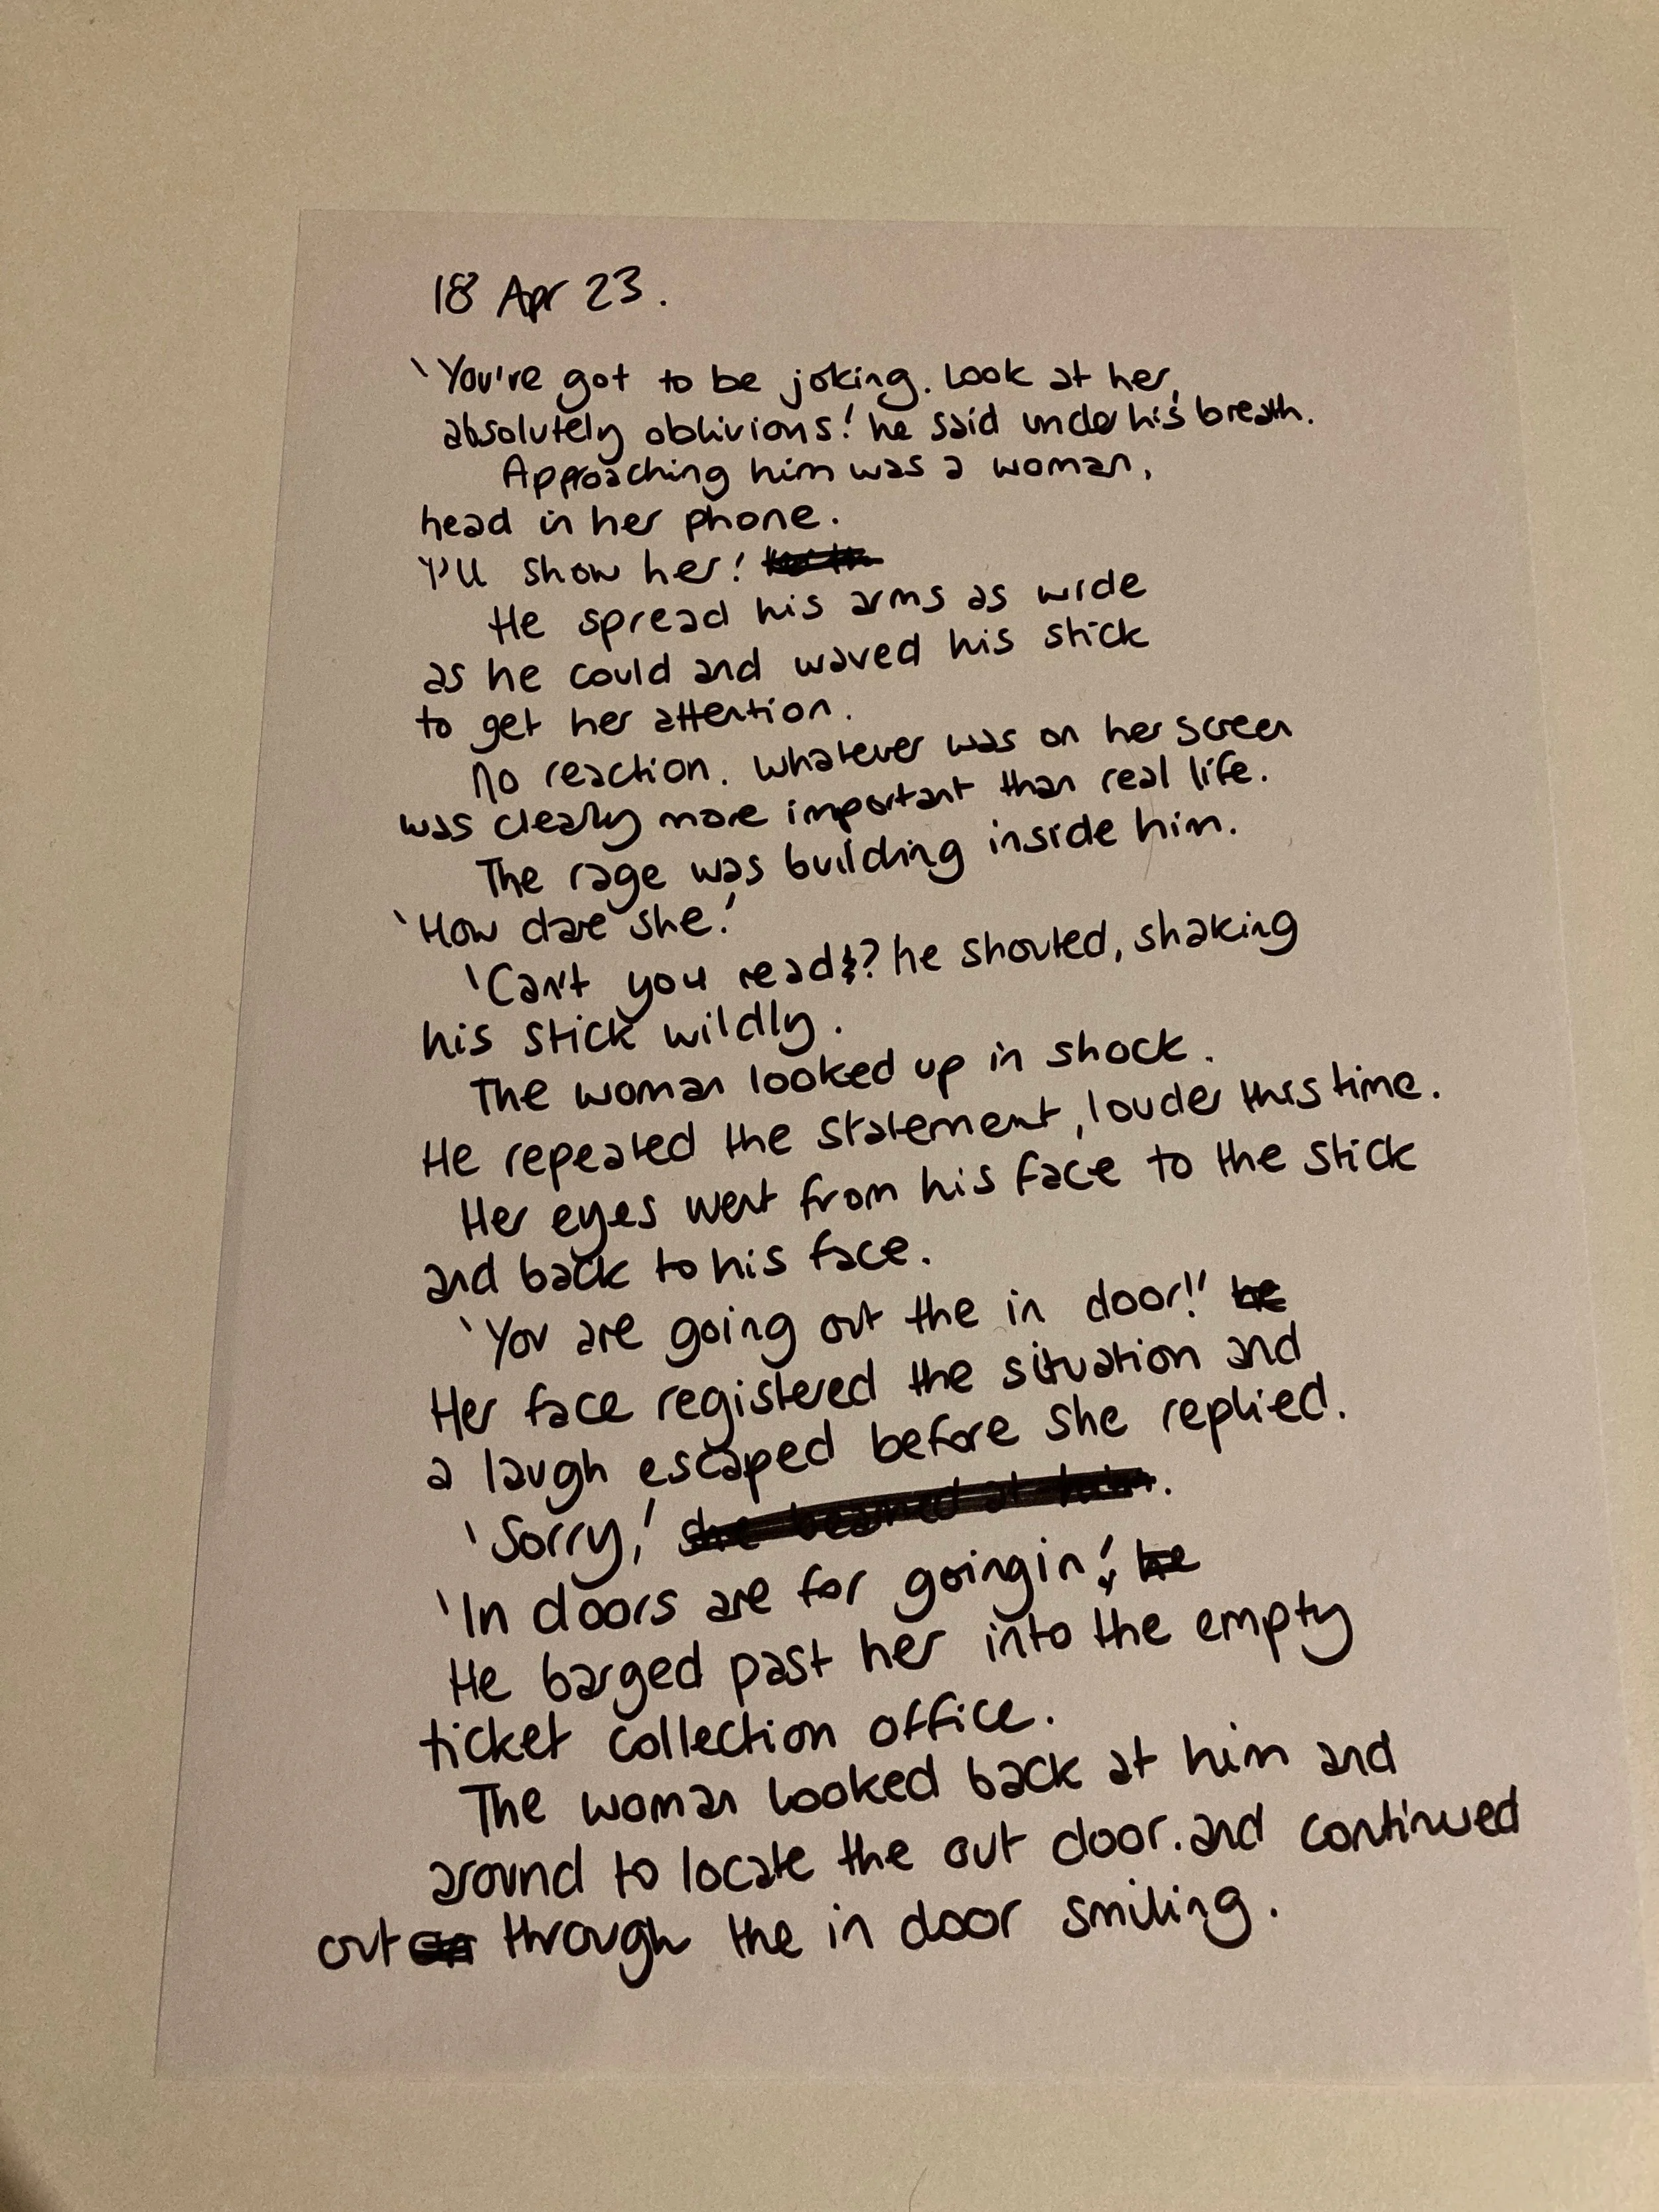 18 Apr 23.
'You're got to be joking. Look at her,
absolutely oblivious!' he said under his breath.
Approaching him was a woman,
head in her phone.
'I'll show her!'
He spread his arms as wide
as he could and waved his stick
to get her attention.
No reaction. Whatever was on her screen
was clearly more important than real life.
The rage was building inside him.
'How dare she.'
'Can't you read?' he shouted, shaking
his stick wildly.
The woman looked up in shock.
He repeated the statement, louder this time.
Her eyes went from his face to the stick
and back to his face.
'You are going out the in door!!' he
Her face registered the situation and
a laugh escaped before she replied.
'Sorry,' she beamed at him.
'In doors are for going in!' he
He barged past her into the empty
ticket collection office.
The woman looked back at him and
around to locate the out door. and continued
out through the in door smiling.